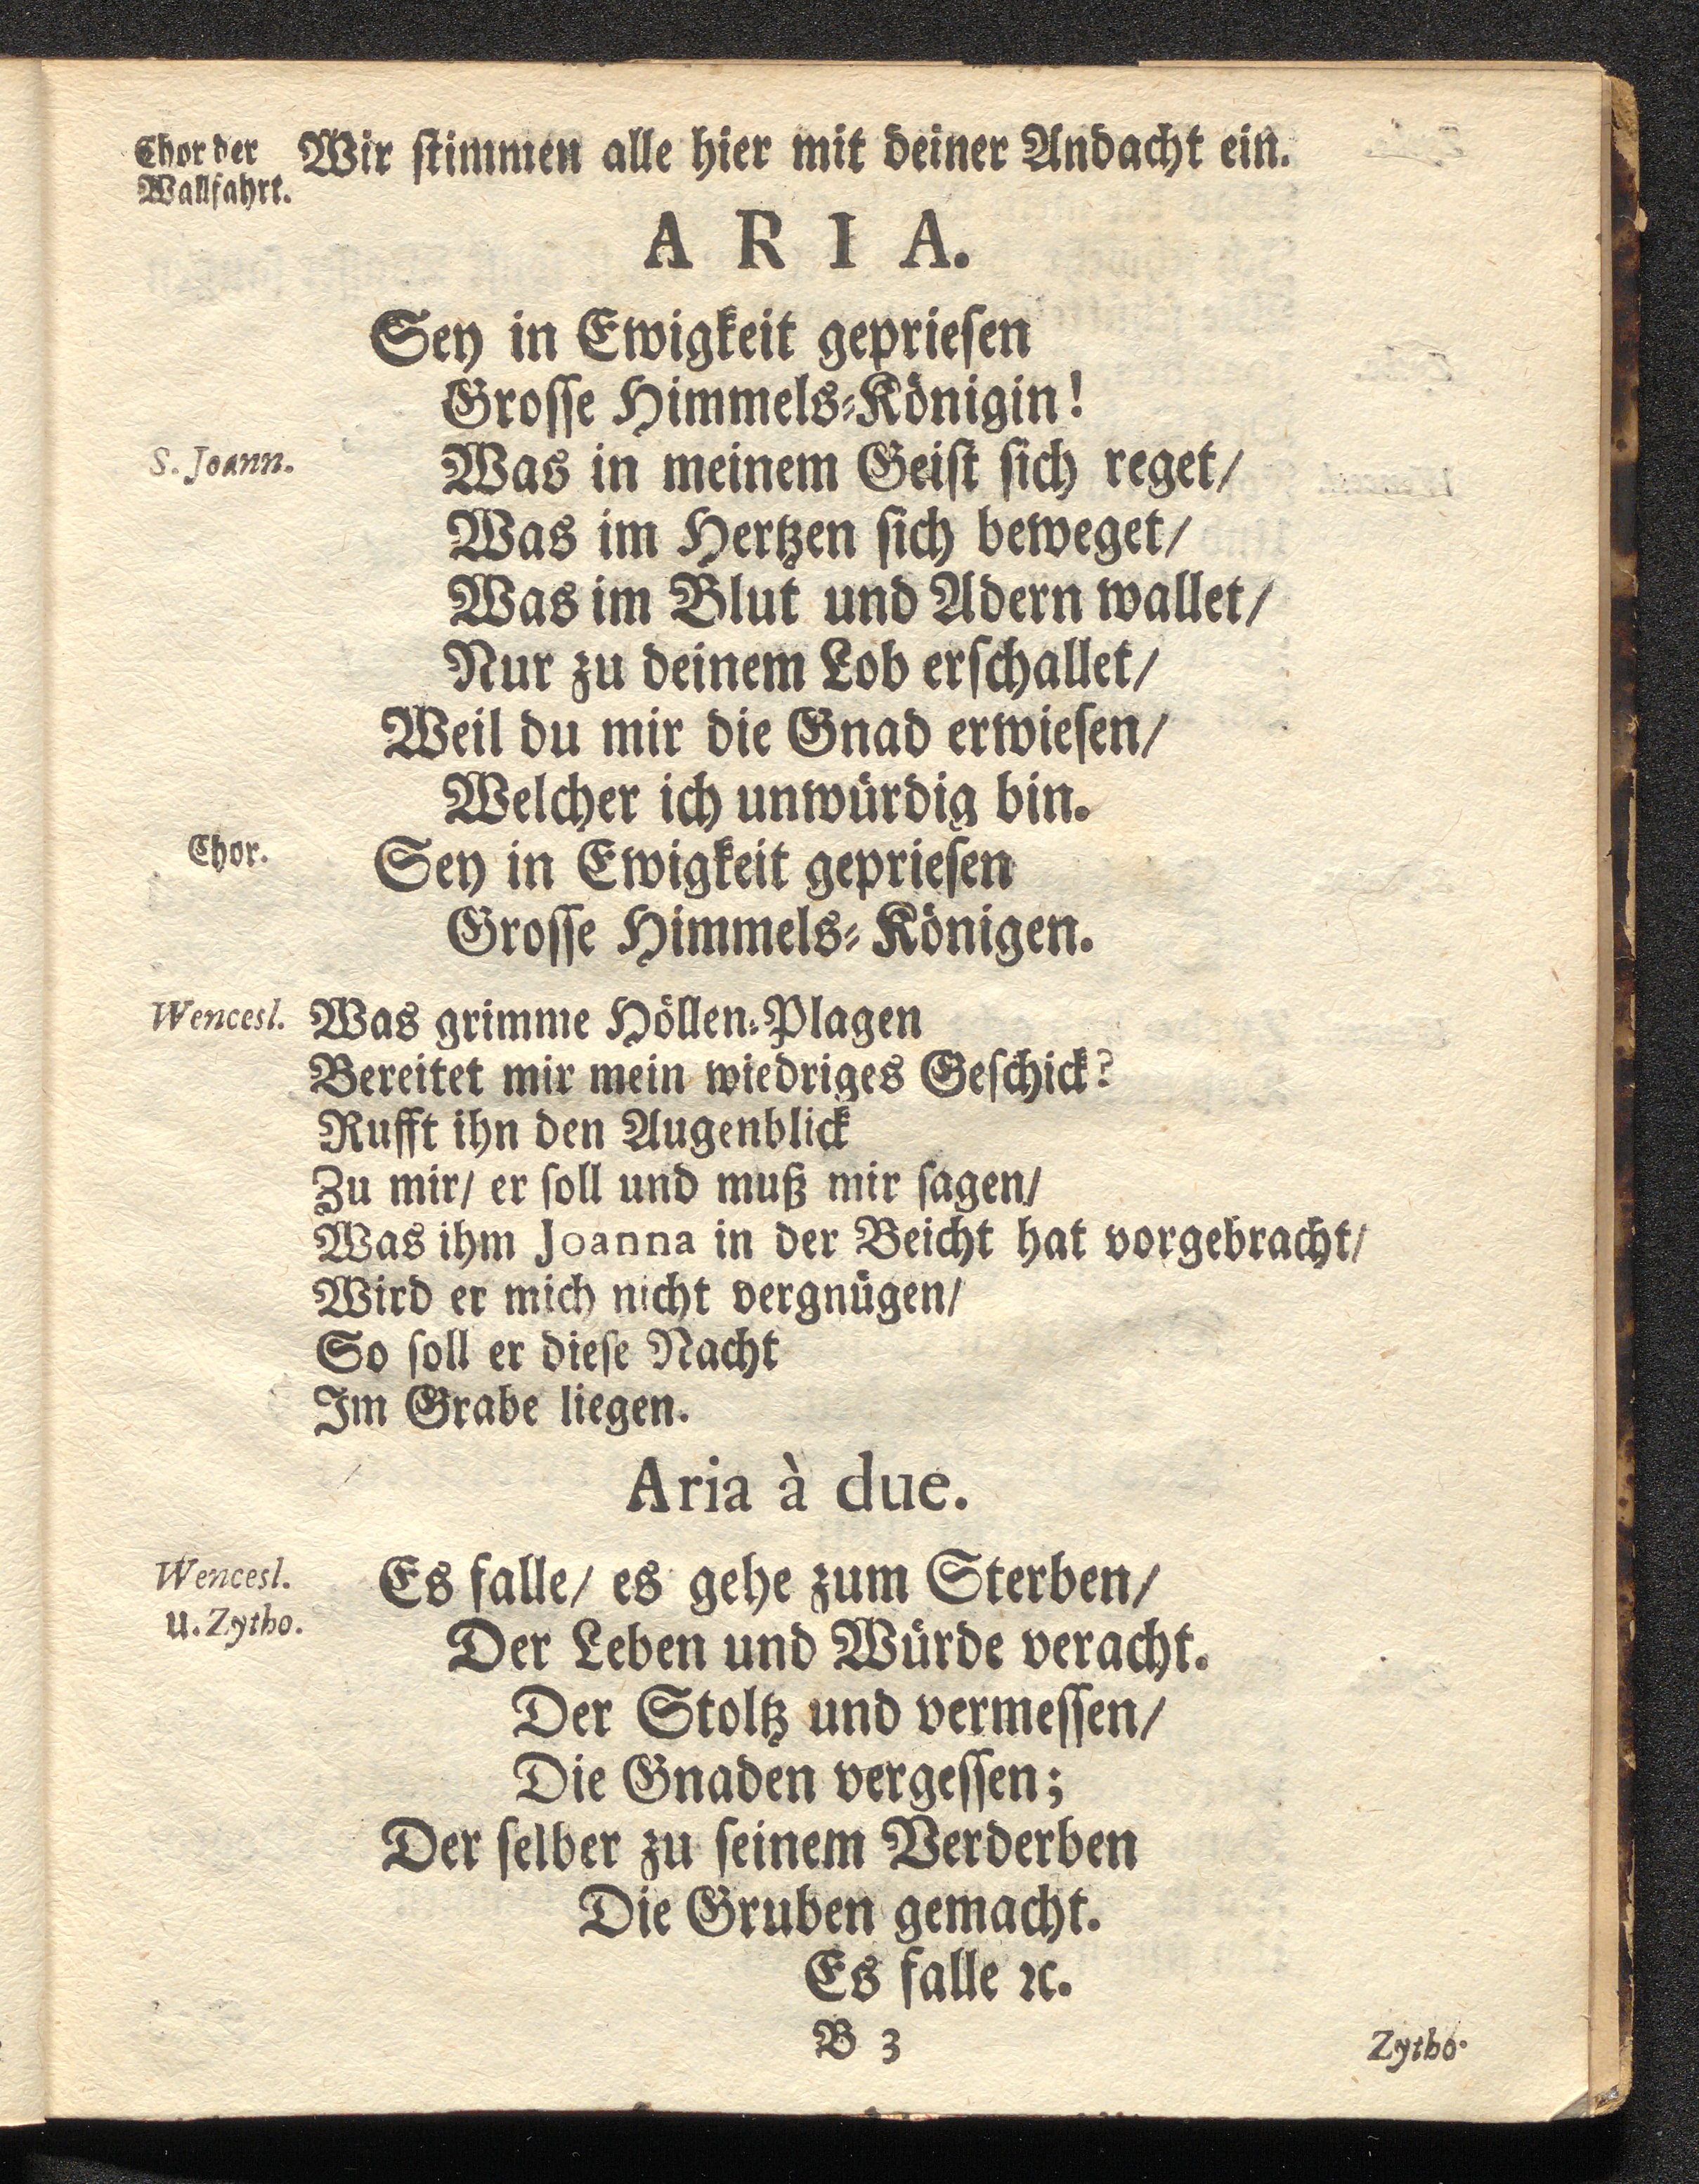 Chor der Wir stimmen alle hier mit deiner Andacht ein.
Wallfahrt.
ARIA.
Sey in Ewigkeit gepriesen
Grosse Himmels-Königin!
S. Joann. Was in meinem Geist sich reget/
Was im Hertzen sich beweget/
Was im Blut und Adern wallet/
Nur zu deinem Lob erschallet/
Weil du mir die Gnad erwiesen/
Welcher ich unwürdig bin.
Chor. Sey in Ewigkeit gepriesen
Grosse Himmels-Königen.
Wencesl. Was grimme Höllen-Plagen
Bereitet mir mein wiedriges Geschick?
Rufft ihn den Augenblick
Zu mir/ er soll und muß mir sagen/
Was ihm Joanna in der Beicht hat vorgebracht/
Wird er mich nicht vergnügen/
So soll er diese Nacht
Im Grabe liegen.
Aria à due.
Wencesl. Es falle/ es gehe zum Sterben/
u. Zytho.
Der Leben und Würde veracht.
Der Stoltz und vermessen/
Die Gnaden vergessen;
Der selber zu seinem Verderben
Die Gruben gemacht.
Es falle ꝛc.
B 3 Zytho.